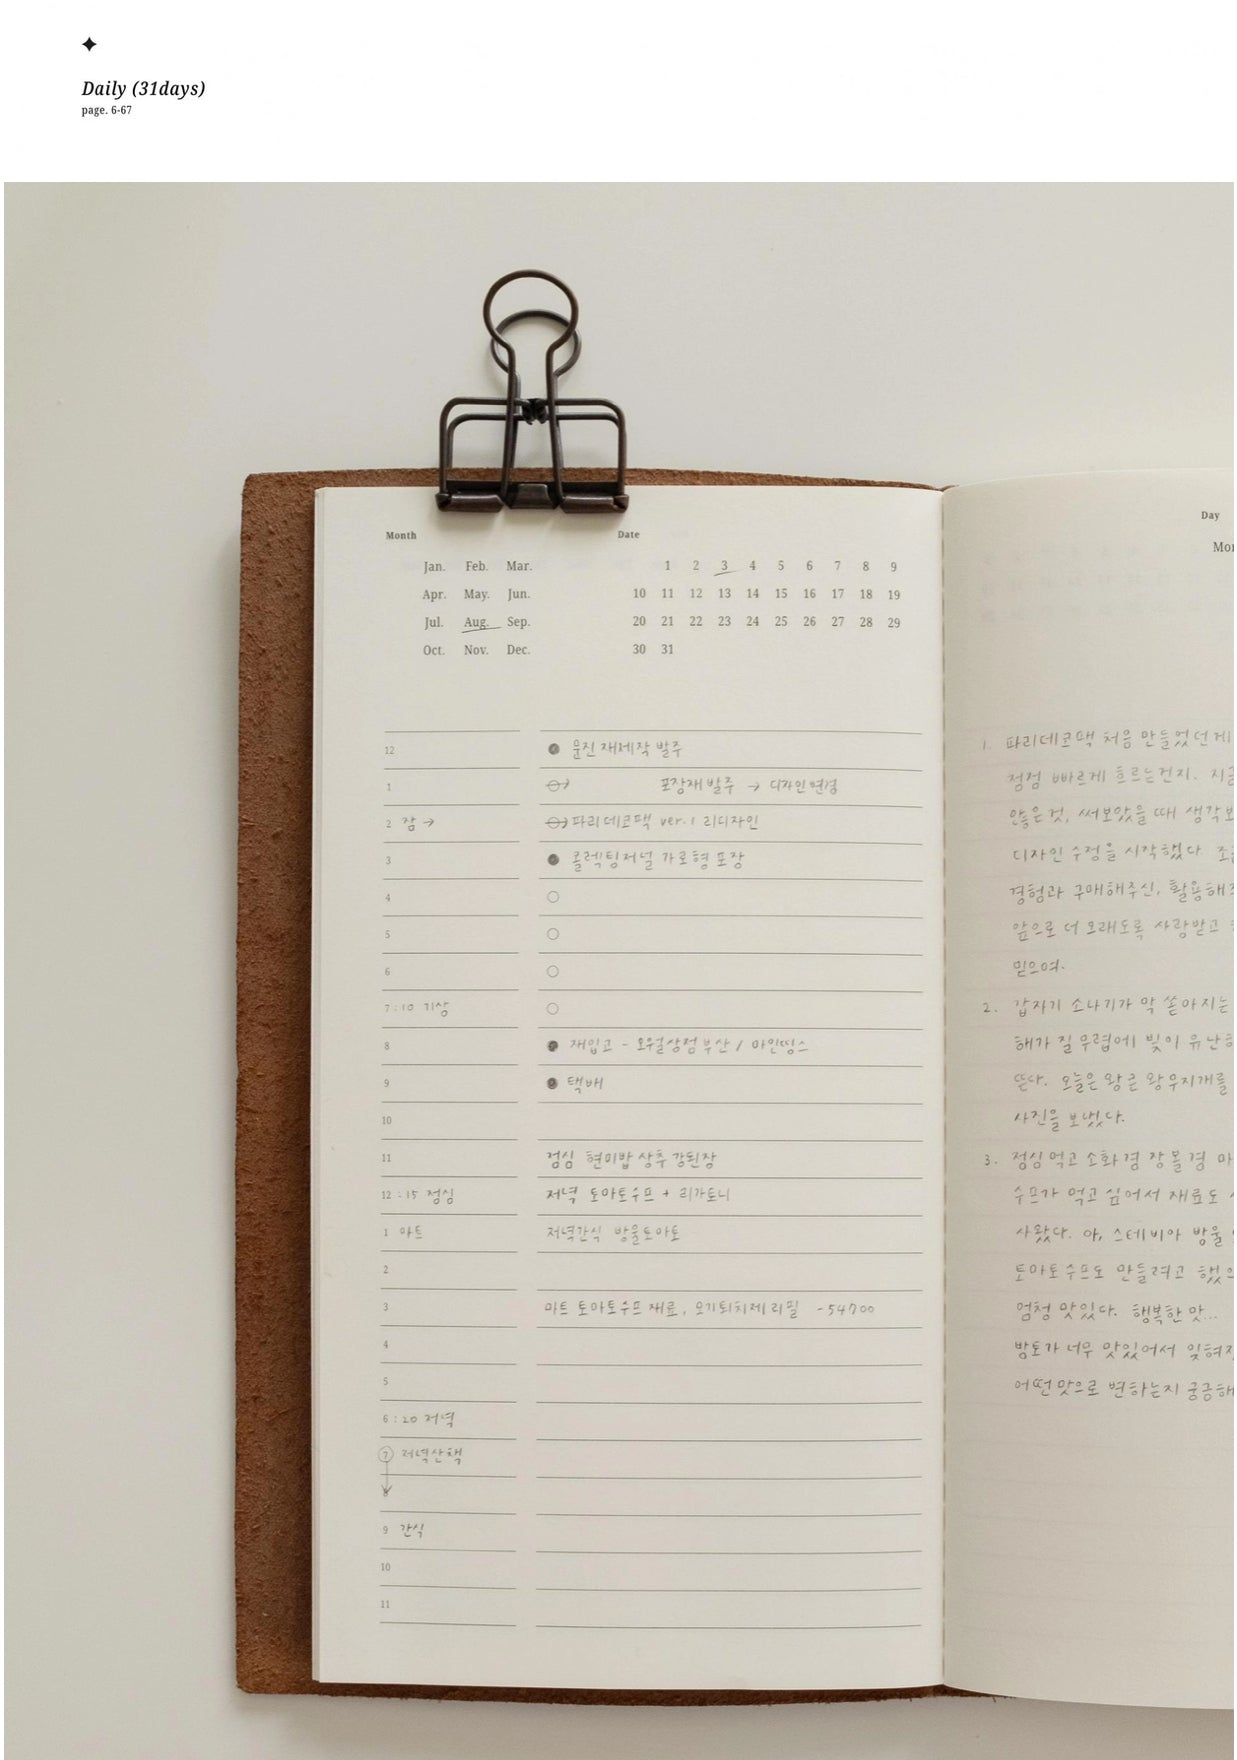 Daily (31days)
page. 6-67
Month
Jan. Feb. Mar.
Apr. May. Jun.
Jul. Aug. Sep.
Oct. Nov. Dec.
Date
1 2 3 4 5 6 7 8 9
10 11 12 13 14 15 16 17 18 19
20 21 22 23 24 25 26 27 28 29
30 31
12
1
2 잠 →
3
4
5
6
7:10 기상
8
9
10
11
12:15 점심
1 마트
2
3
4
5
6:20 저녁
7 저녁산책
8
9 간식
10
11
문진 재제작 발주
포장재 발주 → 디자인변경
파리데코팩 ver.1 리디자인
콜렉팅저널 가로형 포장
재입고 - 오월상점 부산 / 마인띵스
택배
점심 현미밥 상추 강된장
저녁 토마토수프 + 리가토니
저녁간식 방울토마토
마트 토마토수프 재료, 모기퇴치제 리필 -54700
Day
1. 파리데코팩 처음 만들었던게
점점 빠르게 흐르는건지. 지금
않은 것, 써보았을 때 생각
디자인 수정을 시작했다.
경험과 구매해주신, 활용해
앞으로 더 오래도록 사랑받고
믿으며.
2. 갑자기 소나기가 막 쏟아지는
해가 질 무렵에 빛이 유난
뜬다. 오늘은 왕큰 왕무지개를
사진을 보냈다.
3. 점심 먹고 소화 겸 장 볼 겸
수프가 먹고 싶어서 재료도
사왔다. 아, 스테비아 방울
토마토수프도 만들려고 했
엄청 맛있다. 행복한 맛...
방토가 너무 맛있어서 잊혀
어떤맛으로 변하는지 궁금해